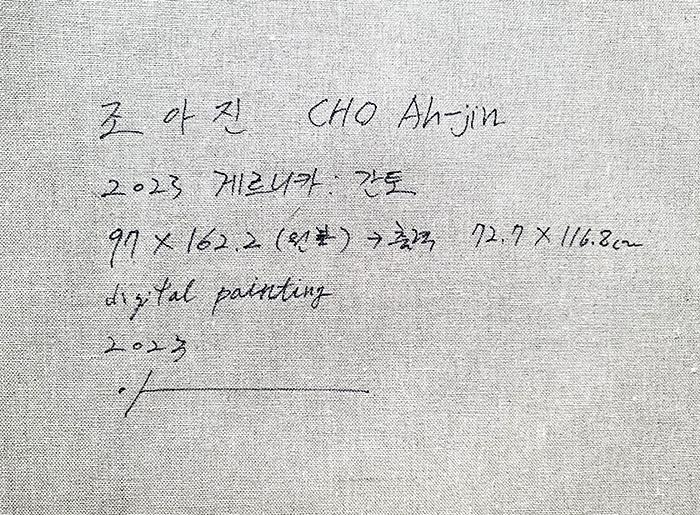 조아진 CHO Ah-jin
2023 게르니카 : 간토
97 × 162.2 (원본) → 출력 72.7 × 116.8cm
digital painting
2023